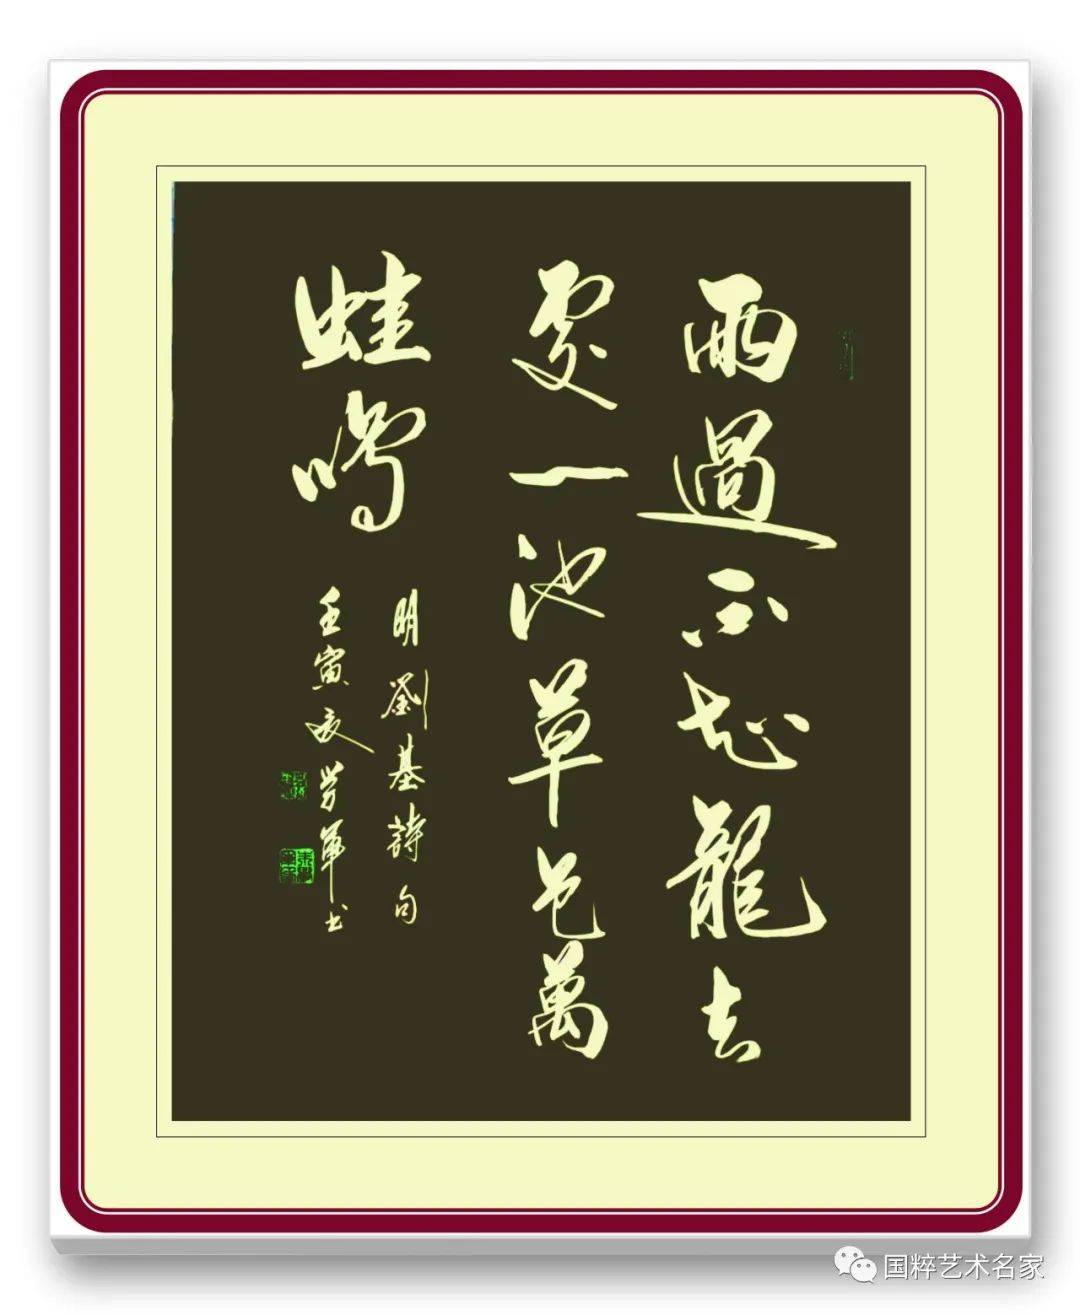 雨過不知龍去
處一池草色萬
蛙鳴
明劉基詩句
壬寅夏芳軍书
国粹艺术名家